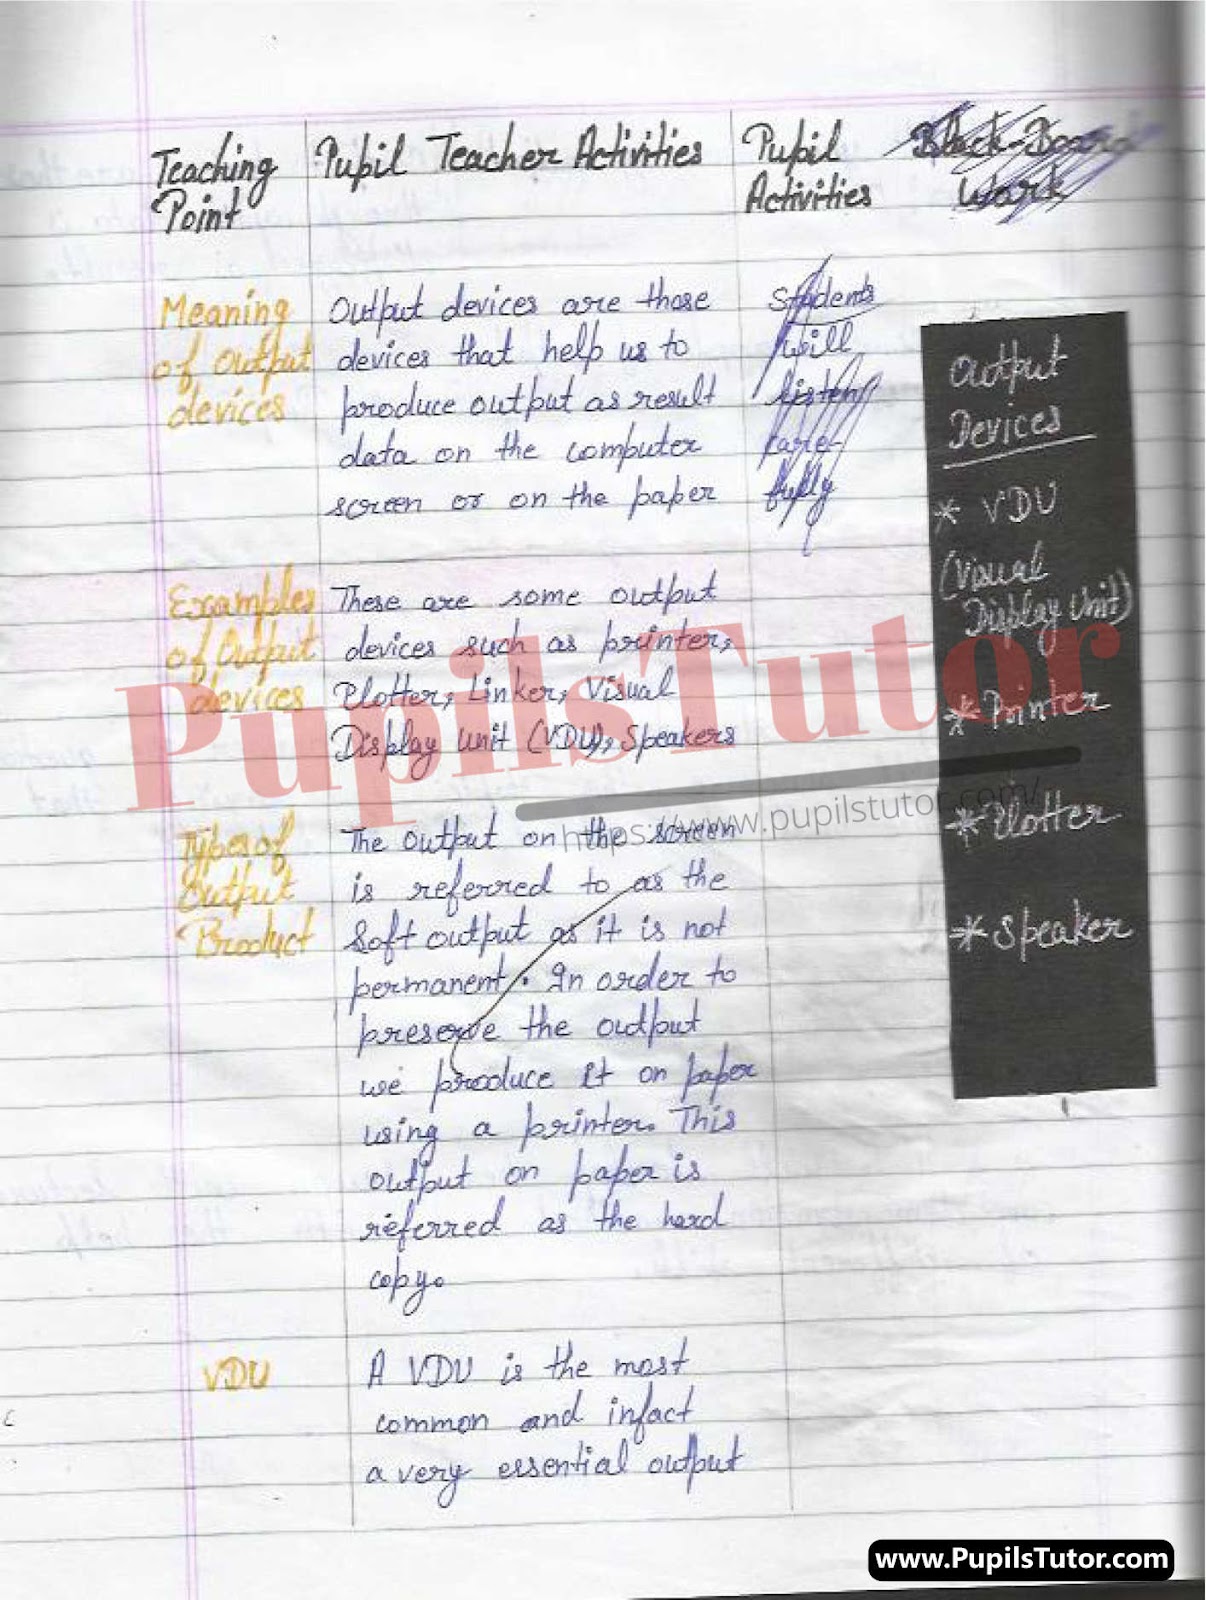 Teaching
Point
Pupil Teacher Activities
Pupil
Activities
Black-Board
Work
Meaning
of Output
devices
Output devices are those
devices that help us to
produce output as result
data on the computer
screen or on the paper
Students
will
listen
care-
fully
Examples
of Output
devices
These are some output
devices such as printer,
Plotter, Linker, Visual
Display Unit (VDU), Speakers
Types of
Output
Product
The output on the screen
is referred to as the
Soft output as it is not
permanent. In order to
preserve the output
we produce it on paper
using a printer. This
output on paper is
referred as the hard
copy.
VDU
A VDU is the most
common and infact
a very essential output
Output
Devices
* VDU
(Visual
Display Unit)
* Printer
* Plotter
* Speaker
PupilsTutor
https://www.pupilstutor.com/
www.PupilsTutor.com